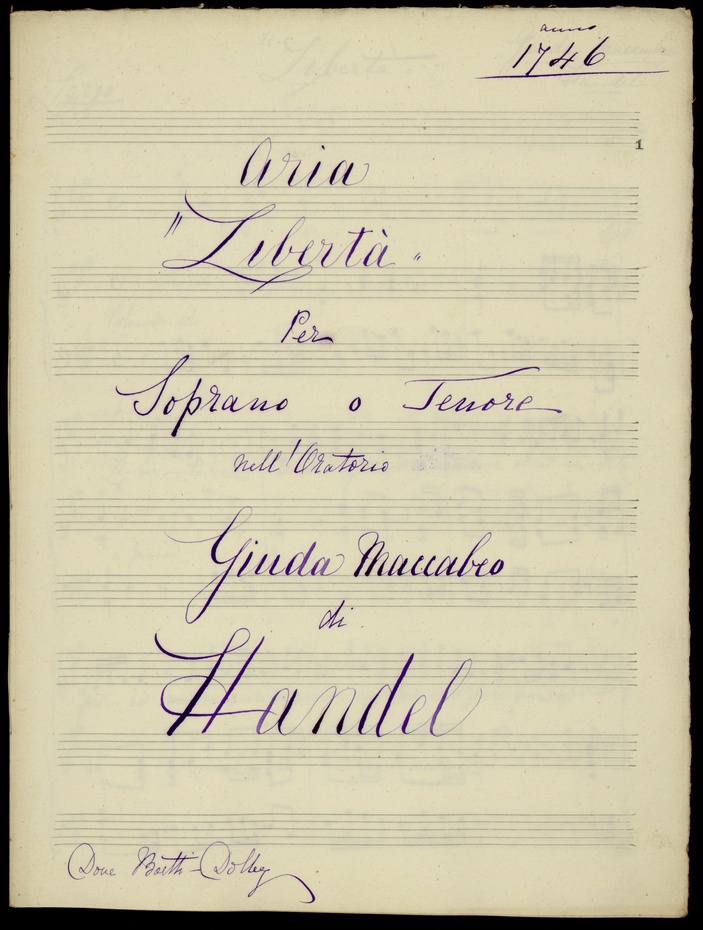 anno
1746
1
Aria
"Libertà"
Per
Soprano o Tenore
nell'Oratorio
Giuda Maccabeo
di
Handel
Done